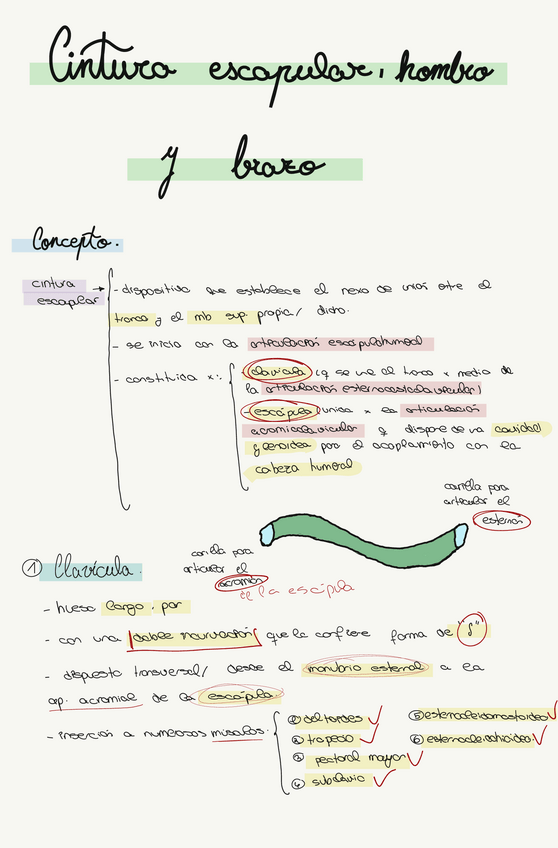 Cintura escapular, hombro
y brazo
Concepto.
cintura escapular → - dispositivo que establece el nexo de unión entre el
tronco y el mb sup. propia/ dicho.
- se inicia con la articulación escapulohumeral
- constituida x:
- clavícula (q se une al tronco x medio de
la articulación esternocostoclavicular)
- escápula (unida x la articulación
acromioclavicular q dispone de una cavidad
glenoidea para el acoplamiento con la
cabeza humeral)
carilla para
articular el
esternón
carilla para
articular el
acromion
de la escápula
① Clavícula.
- hueso largo, par
- con una doble incurvación que la confiere forma de "S"
- dispuesto transversal/ desde el manubrio esternal a la
ap. acromial de la escápula
- inserción a numerosos músculos:
① deltoides
② trapecio
③ pectoral mayor
④ subclavio
⑤ esternocleidomastoideo
⑥ esternocleidohioideo